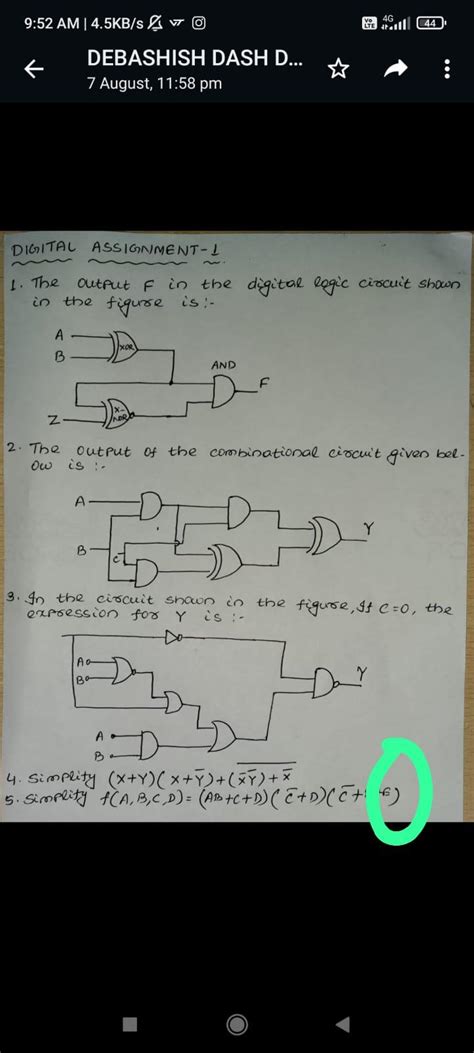 9:52 AM | 4.5KB/s
Vo LTE 4G 44
DEBASHISH DASH D...
7 August, 11:58 pm
DIGITAL ASSIGNMENT-1
1. The output F in the digital logic circuit shown
in the figure is :-
A
B
XOR
AND
F
Z
X-NOR
2. The output of the combinational circuit given bel-
ow is :-
A
B
C
Y
3. In the circuit shown in the figure, If C=0, the
expression for Y is :-
A
B
Y
A
B
4. Simplity (X+Y)(X+Y̅)+(X̅Y̅)+X̅
5. Simplity f(A,B,C,D)= (AB+C+D)(C̅+D)(C̅+